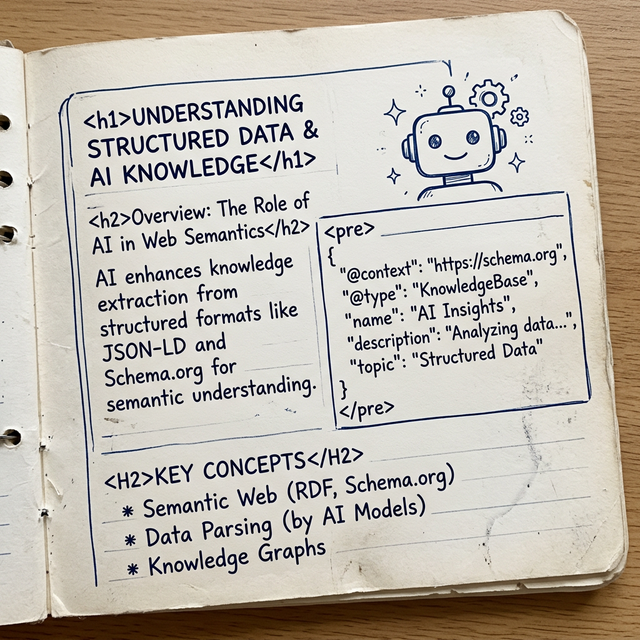 <h1>UNDERSTANDING
STRUCTURED DATA &
AI KNOWLEDGE</h1>
<h2>Overview: The Role of
AI in Web Semantics</h2>
AI enhances knowledge
extraction from
structured formats like
JSON-LD and
Schema.org for
semantic understanding.
<pre>
{
"@context": "https://schema.org",
"@type": "KnowledgeBase",
"name": "AI Insights",
"description": "Analyzing data...",
"topic": "Structured Data"
}
</pre>
<H2>KEY CONCEPTS</H2>
* Semantic Web (RDF, Schema.org)
* Data Parsing (by AI Models)
* Knowledge Graphs